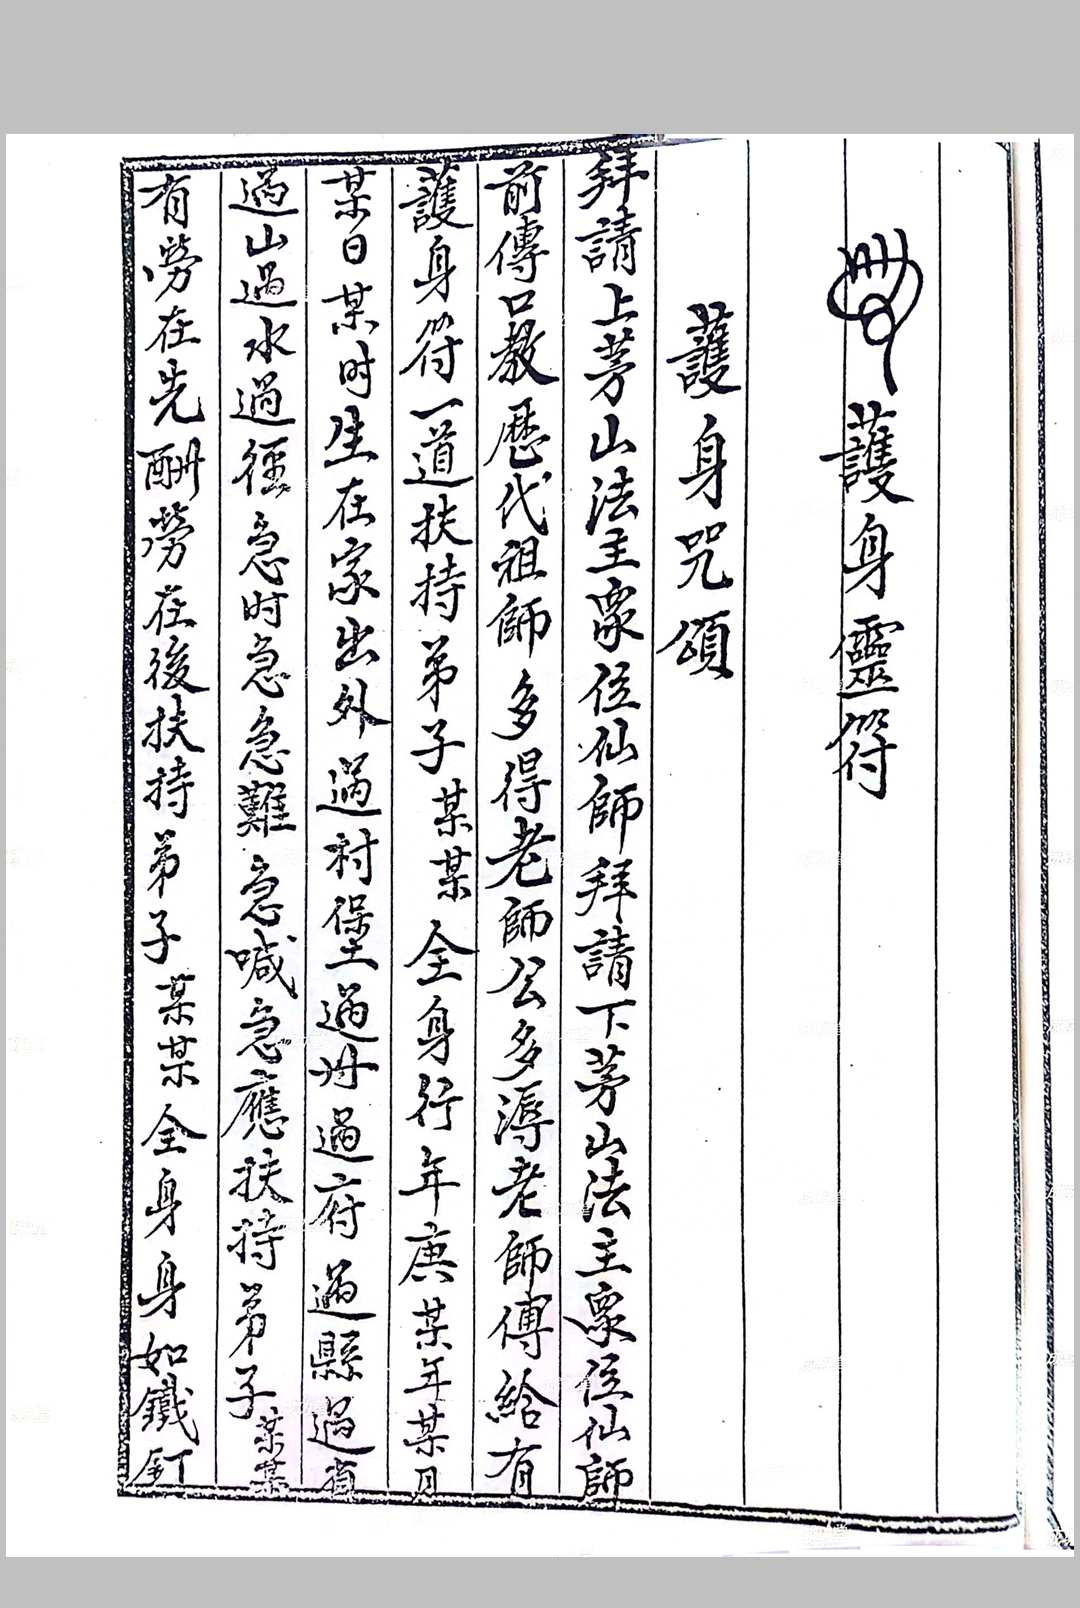 護身靈符
護身咒頌
拜請上茅山法主衆位仙師拜請下茅山法主衆位仙師
前傳口教歷代祖師多得老師公多得老師傅給有
護身符一道扶持弟子某某全身行年庚某年某月
某日某时生在家出外過村堡過州過府過縣過省
過山過水過徑急时急急難急喊急應扶持弟子某某
有勞在先酬勞在後扶持弟子某某全身身如鐵釘